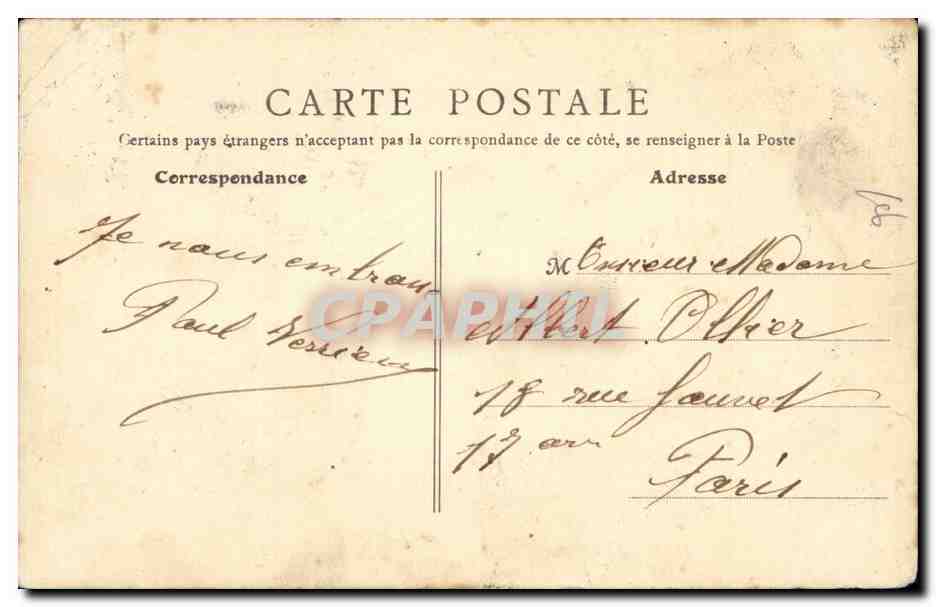 CARTE POSTALE
Certains pays étrangers n'acceptant pas la correspondance de ce côté, se renseigner à la Poste
Correspondance
Je nous embran
Paul
Adresse
Monsieur Madame
Albert Ollier
18 rue Sauvet
17 arr
Paris
CPAPHIL